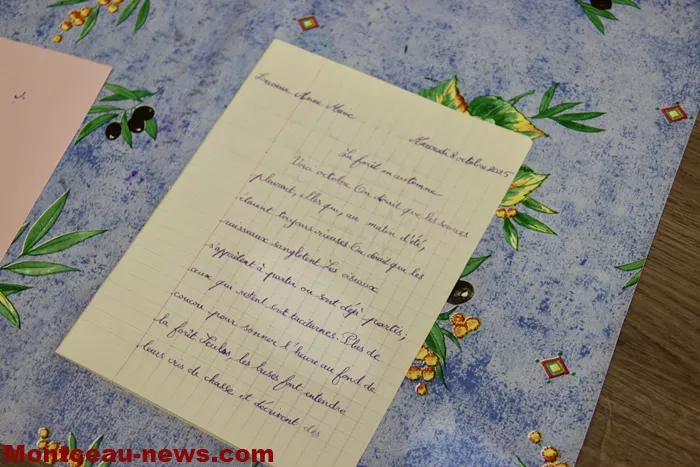 Anne Marie
Mercredi 8 octobre 2025
La forêt en automne
Voici octobre On dirait que les sources
pleurent, elles qui, au matin d'été,
étaient toujours rieuses On dirait que les
ruisseaux sanglotent Les oiseaux
s'apprêtent à partir ou sont déjà partis;
ceux qui restent sont taciturnes. Plus de
coucou pour sonner l'heure au fond de
la forêt Seules, les buses font entendre
leurs cris de chasse et décrivent des
Montceau-news.com